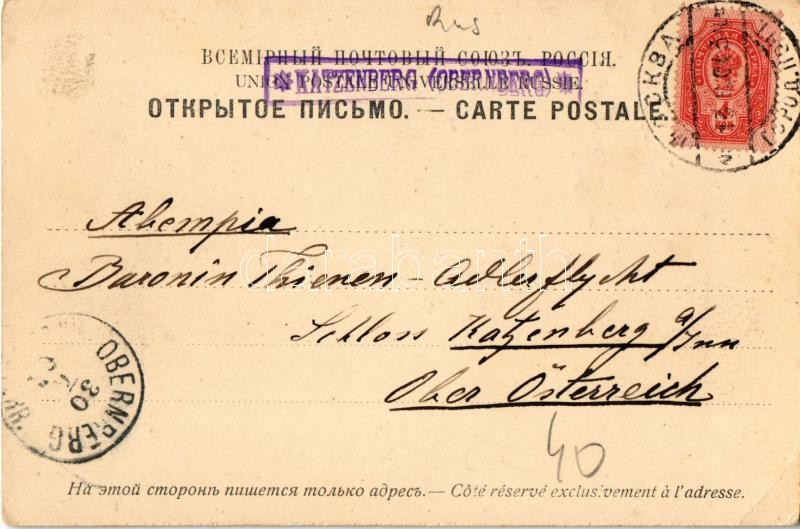 Rus
ВСЕМІРНЫЙ ПОЧТОВЫЙ СОЮЗЪ. РОССІЯ.
UNION POSTALE UNIVERSELLE. RUSSIE.
* KATZENBERG (OBERNBERG) *
ОТКРЫТОЕ ПИСЬМО. — CARTE POSTALE.
МОСКВА
Австрія
Baronin Thienen-Adlerflycht
Schloss Katzenberg a/Inn
Ober Österreich
OBERNBERG
30
40
На этой сторонѣ пишется только адресъ. — Côté réservé exclusivement à l'adresse.
darabanth